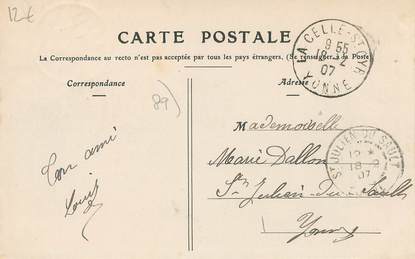 12€
CARTE POSTALE
La Correspondance au recto n'est pas acceptée par tous les pays étrangers, (Se renseigner à la Poste)
Correspondance
Adresse
LA CELLE-ST-CYR
9 55
18 -2
07
YONNE
89)
Ton ami
Louis
Mademoiselle
Marie Dallon
St Julien du Sault
Yonne
ST JULIEN-DU-SAULT
12 *
18 -2
07